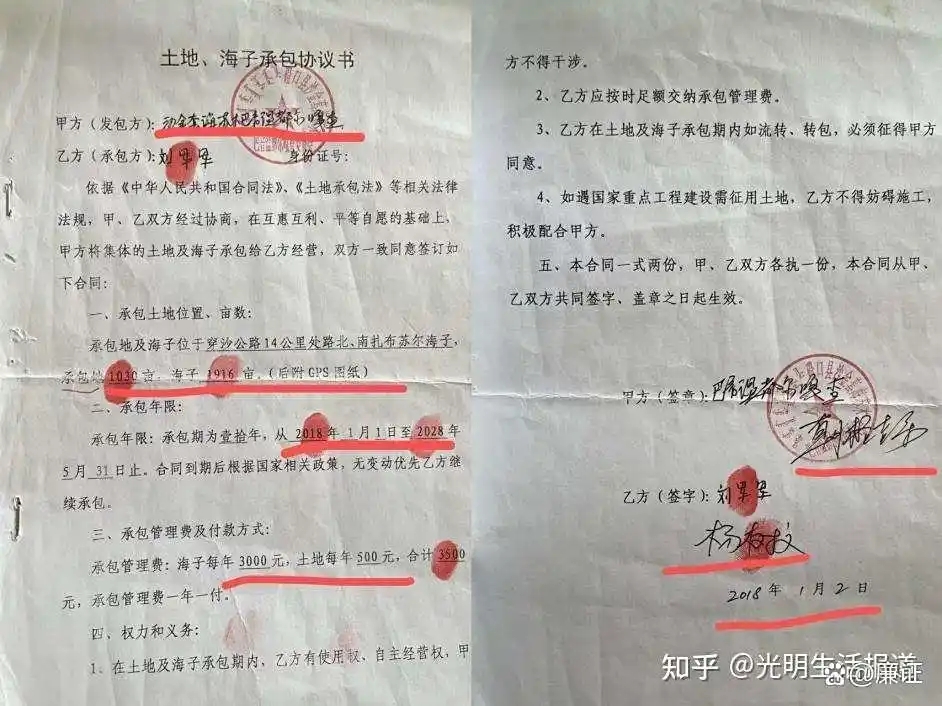 土地、海子承包协议书
甲方（发包方）：
乙方（承包方）：刘军军 身份证号：
依据《中华人民共和国合同法》、《土地承包法》等相关法律
法规，甲、乙双方经过协商，在互惠互利、平等自愿的基础上，
甲方将集体的土地及海子承包给乙方经营，双方一致同意签订如
下合同：
一、承包土地位置、亩数：
承包地及海子位于穿沙公路14公里处路北、南扎布苏尔海子，
承包地1030亩，海子1916亩。（后附GPS图纸）
二、承包年限：
承包年限：承包期为壹拾年，从2018年1月1日至2028年
5月31日止。合同到期后根据国家相关政策，无变动优先乙方继
续承包。
三、承包管理费及付款方式：
承包管理费：海子每年3000元，土地每年500元，合计3500
元，承包管理费一年一付。
四、权力和义务：
1、在土地及海子承包期内，乙方有使用权、自主经营权，甲
方不得干涉。
2、乙方应按时足额交纳承包管理费。
3、乙方在土地及海子承包期内如流转、转包，必须征得甲方
同意。
4、如遇国家重点工程建设需征用土地，乙方不得妨碍施工，
积极配合甲方。
五、本合同一式两份，甲、乙双方各执一份，本合同从甲、
乙双方共同签字、盖章之日起生效。
甲方（签章）：巴音温都尔嘎查
乙方（签字）：刘军军
2018年1月2日
知乎 @光明生活报道
@廉证